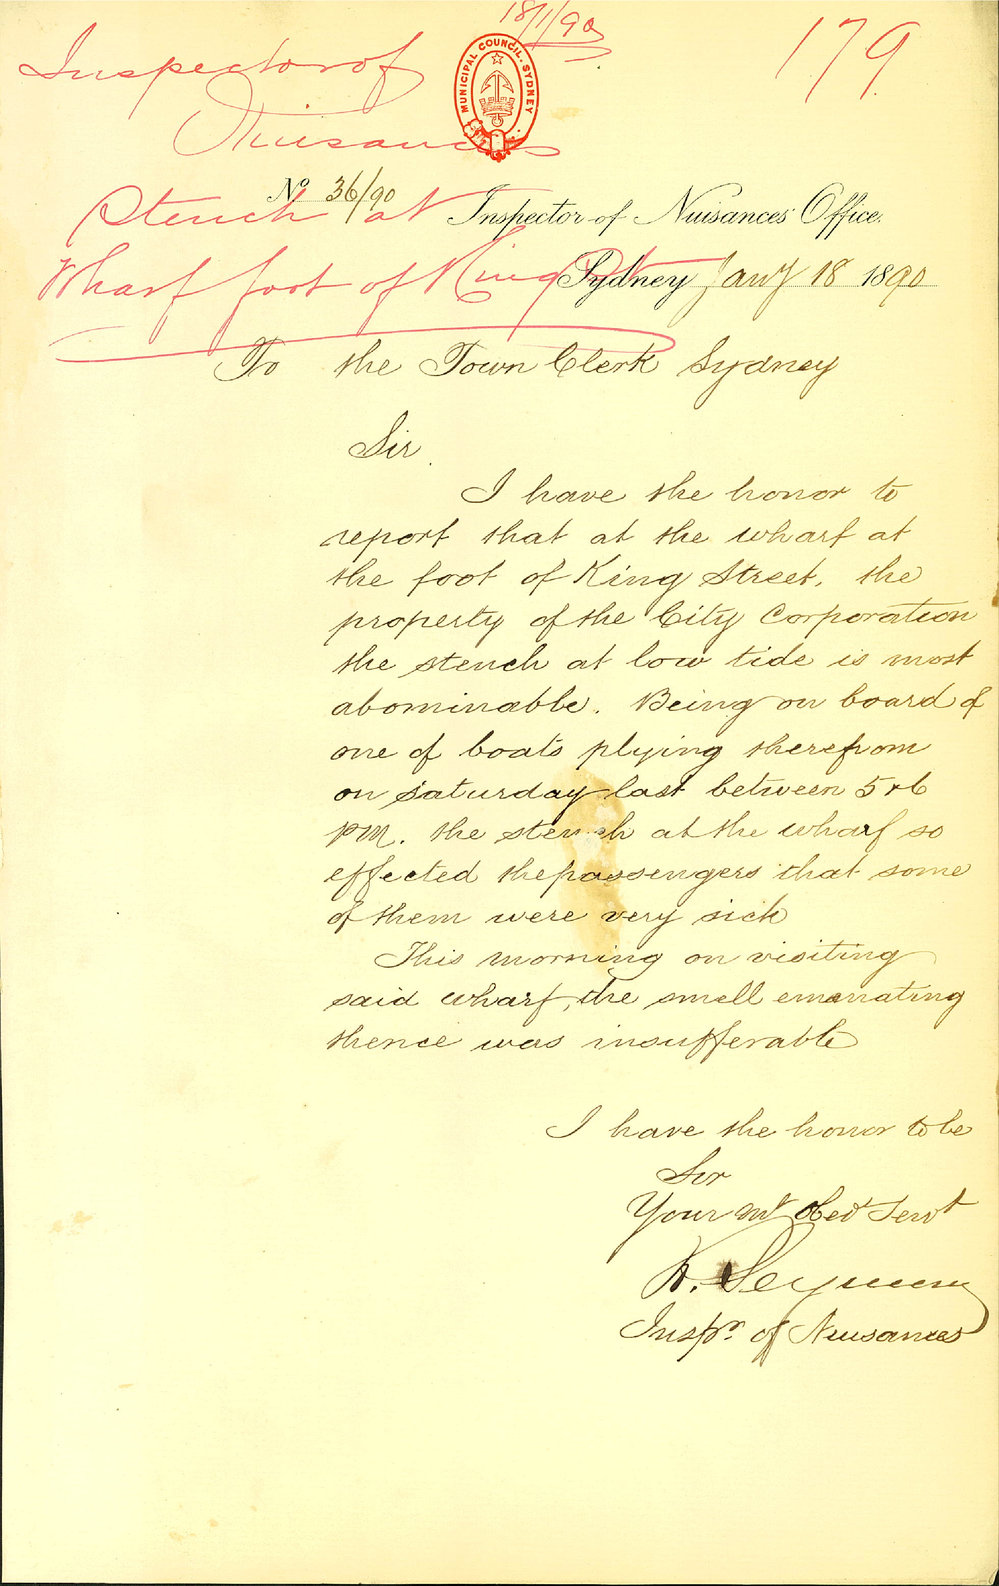 18/1/90
179
Inspector of
Nuisances
MUNICIPAL COUNCIL. SYDNEY
No 36/90
Stench at
Inspector of Nuisances Office.
Wharf foot of King St
Sydney Jany 18 1890
To the Town Clerk Sydney
Sir
I have the honor to
report that at the wharf at
the foot of King Street, the
property of the City Corporation
the stench at low tide is most
abominable. Being on board of
one of boats plying therefrom
on Saturday last between 5 & 6
PM. the stench at the wharf so
effected the passengers that some
of them were very sick
This morning on visiting
said wharf, the smell emanating
thence was insufferable
I have the honor to be
Sir
Your mt Obed Servt
R. Seymour
Inspr. of Nuisances